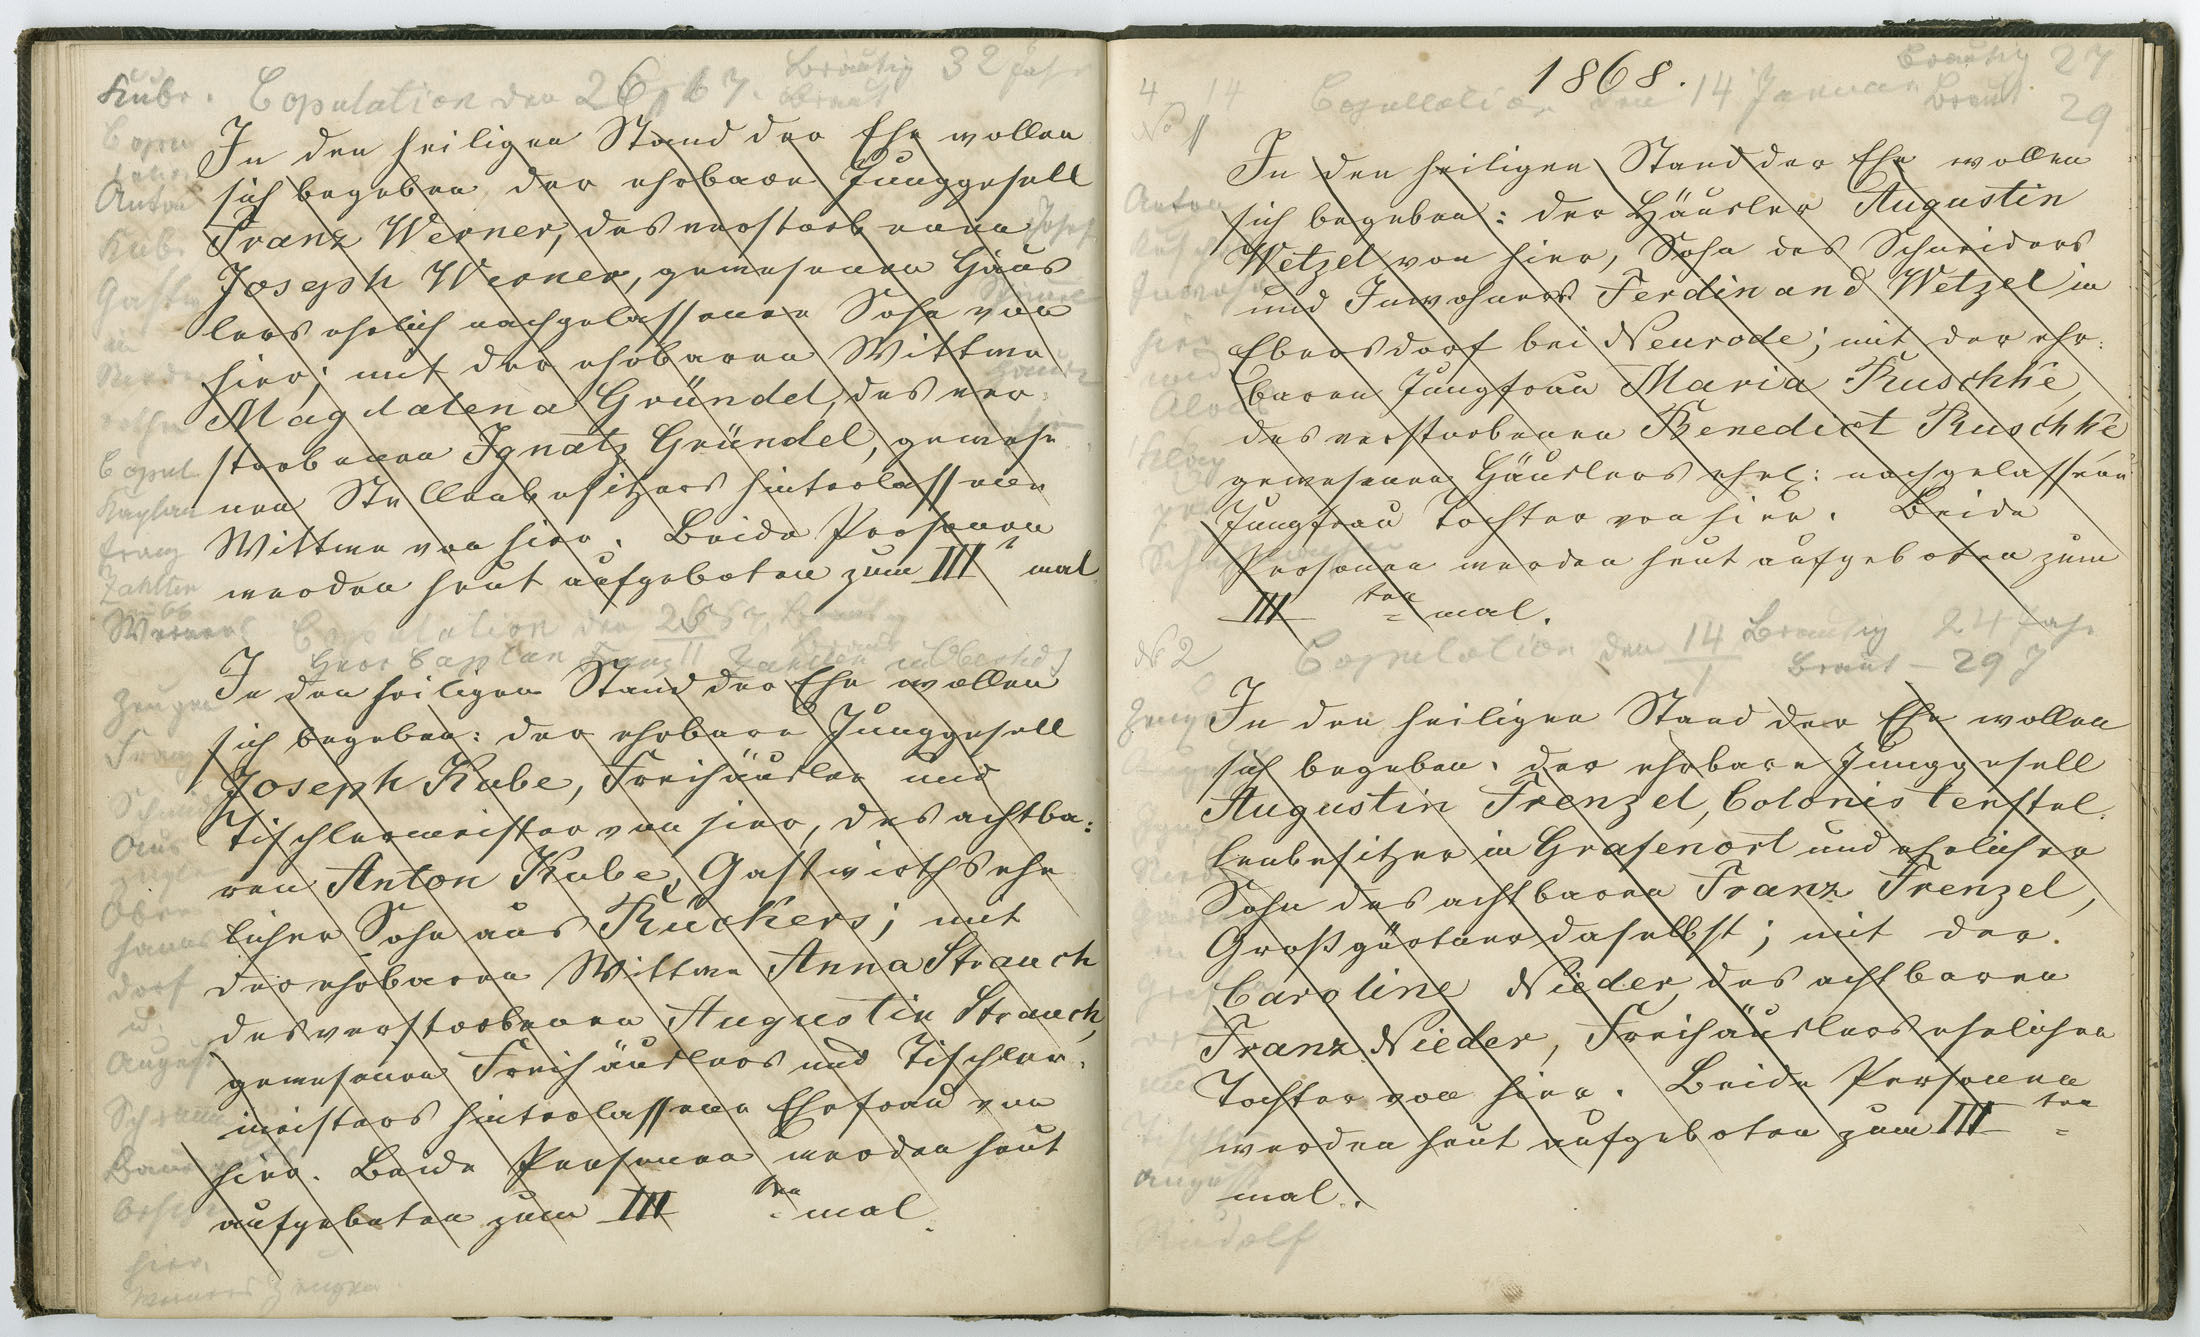 Kube. Copulation den 26/ 67. Bräutig 32 Jahr
Braut
In den heiligen Stand der Ehe wollen
sich begeben der ehrbare Junggesell
Franz Werner, des verstorbenen
Joseph Werner, gewesenen Häus
lers ehelich nachgelassener Sohn von
hier; mit der ehrbaren Wittwe
Magdalena Gründel, des ver:
storbenen Ignatz Gründel, gewese
nen Stellenbesitzers hinterlassene
Wittwe von hier. Beide Personen
werden heut aufgeboten zum III t mal
Copulation den 26
In den heiligen Stand der Ehe wollen
sich begeben: der ehrbare Junggesell
Joseph Kube, Freihäusler und
Tischlermeister von hier, des achtba:
ren Anton Kube, Gastwirths ehe
licher Sohn aus Rückers; mit
der ehrbaren Wittwe Anna Strauch
des verstorbenen Augustin Strauch,
gewesenen Freihäuslers und Tischler:
meisters hinterlassene Ehefrau von
hier. Beide Personen werden heut
aufgeboten zum III ten mal.
Anton
Kube
in
Copul
Kaplan
Franz
Zeugen
Franz
Aus
Ober
hanns
dorf
u.
August
hier.
Werners Zeugen
1868.
Copullation den 14 Januar Bräutig 27
Braut 29
No 1
In den heiligen Stand der Ehe wollen
sich begeben: der Häusler Augustin
Wetzel von hier, Sohn des Schneiders
und Inwohners Ferdinand Wetzel in
Ebersdorf bei Neurode; mit der ehr:
baren Jungfrau Maria Ruschke,
des verstorbenen Benedict Ruschke
gewesenen Häuslers ehel: nachgelassene
Jungfrau Tochter von hier. Beide
Personen werden heut aufgeboten zum
III ten mal.
No 2 Copulation den 14/I Bräutig 24 Jahr
Braut – 29 J
In den heiligen Stand der Ehe wollen
sich begeben. der ehrbare Junggesell
Augustin Frenzel, Colonistenstel:
lenbesitzer in Grafenort und ehelicher
Sohn des achtbaren Franz Frenzel,
Großgärtner daselbst; mit der
Caroline Nieder, des achtbaren
Franz Nieder, Freihäuslers ehelichen
Tochter von hier. Beide Personen
werden heut aufgeboten zum III ten
mal.
Anton
hier
und
August
Rudolf